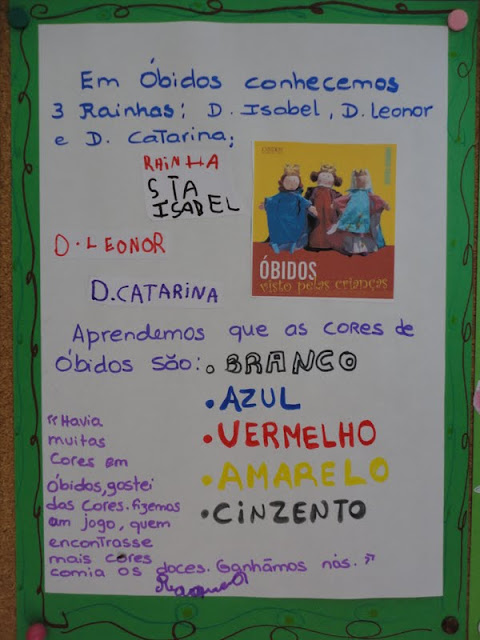 Em Óbidos conhecemos
3 Rainhas: D. Isabel, D. Leonor
e D. Catarina;
RAINHA
STA
ISABEL
D. LEONOR
D. CATARINA
ÓBIDOS
visto pelas crianças
Aprendemos que as cores de
Óbidos são:
• BRANCO
• AZUL
• VERMELHO
• AMARELO
• CINZENTO
"Havia
muitas
cores em
Óbidos, gostei
das cores. fizemos
um jogo, quem
encontrasse
mais cores
comia os doces. Ganhámos nós."